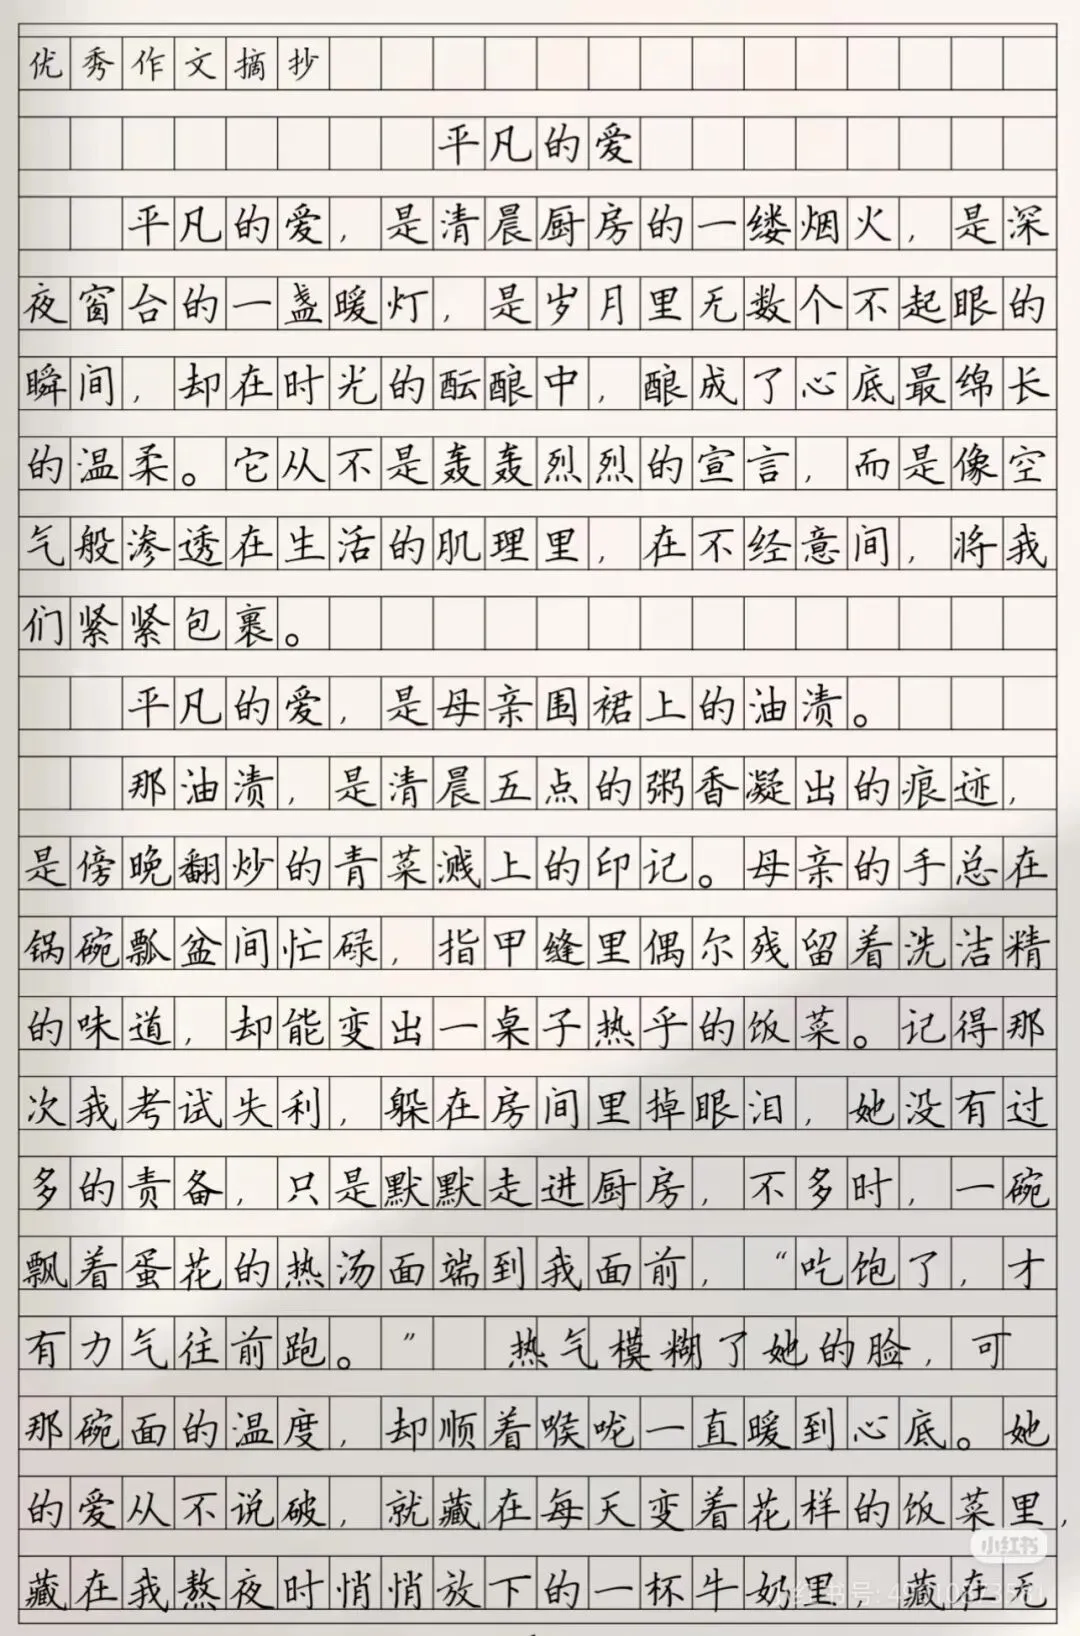 优秀作文摘抄
平凡的爱
平凡的爱，是清晨厨房的一缕烟火，是深
夜窗台的一盏暖灯，是岁月里无数个不起眼的
瞬间，却在时光的酝酿中，酿成了心底最绵长
的温柔。它从不是轰轰烈烈的宣言，而是像空
气般渗透在生活的肌理里，在不经意间，将我
们紧紧包裹。
平凡的爱，是母亲围裙上的油渍。
那油渍，是清晨五点的粥香凝出的痕迹，
是傍晚翻炒的青菜溅上的印记。母亲的手总在
锅碗瓢盆间忙碌，指甲缝里偶尔残留着洗洁精
的味道，却能变出一桌子热乎的饭菜。记得那
次我考试失利，躲在房间里掉眼泪，她没有过
多的责备，只是默默走进厨房，不多时，一碗
飘着蛋花的热汤面端到我面前，“吃饱了，才
有力气往前跑。” 热气模糊了她的脸，可
那碗面的温度，却顺着喉咙一直暖到心底。她
的爱从不说破，就藏在每天变着花样的饭菜里，
藏在我熬夜时悄悄放下的一杯牛奶里，藏在无
小红书